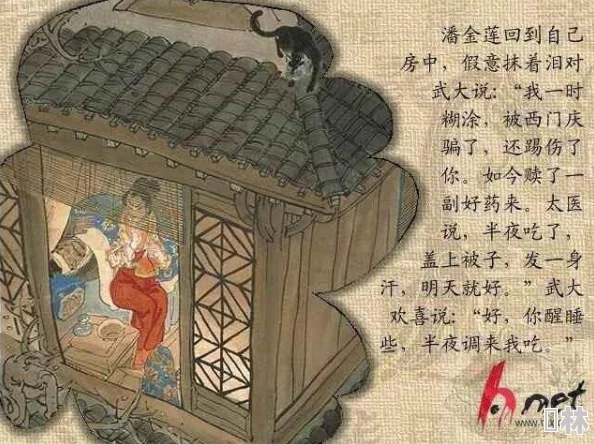 潘金莲回到自己
房中，假意抹着泪对
武大说：“我一时
糊涂，被西门庆
骗了，还踢伤了
你。如今赎了一
副好药来。太医
说，半夜吃了，
盖上被子，发一身
汗，明天就好。”武大
欢喜说：“好，你醒睡
些，半夜调来我吃。”
h.net
www.
林